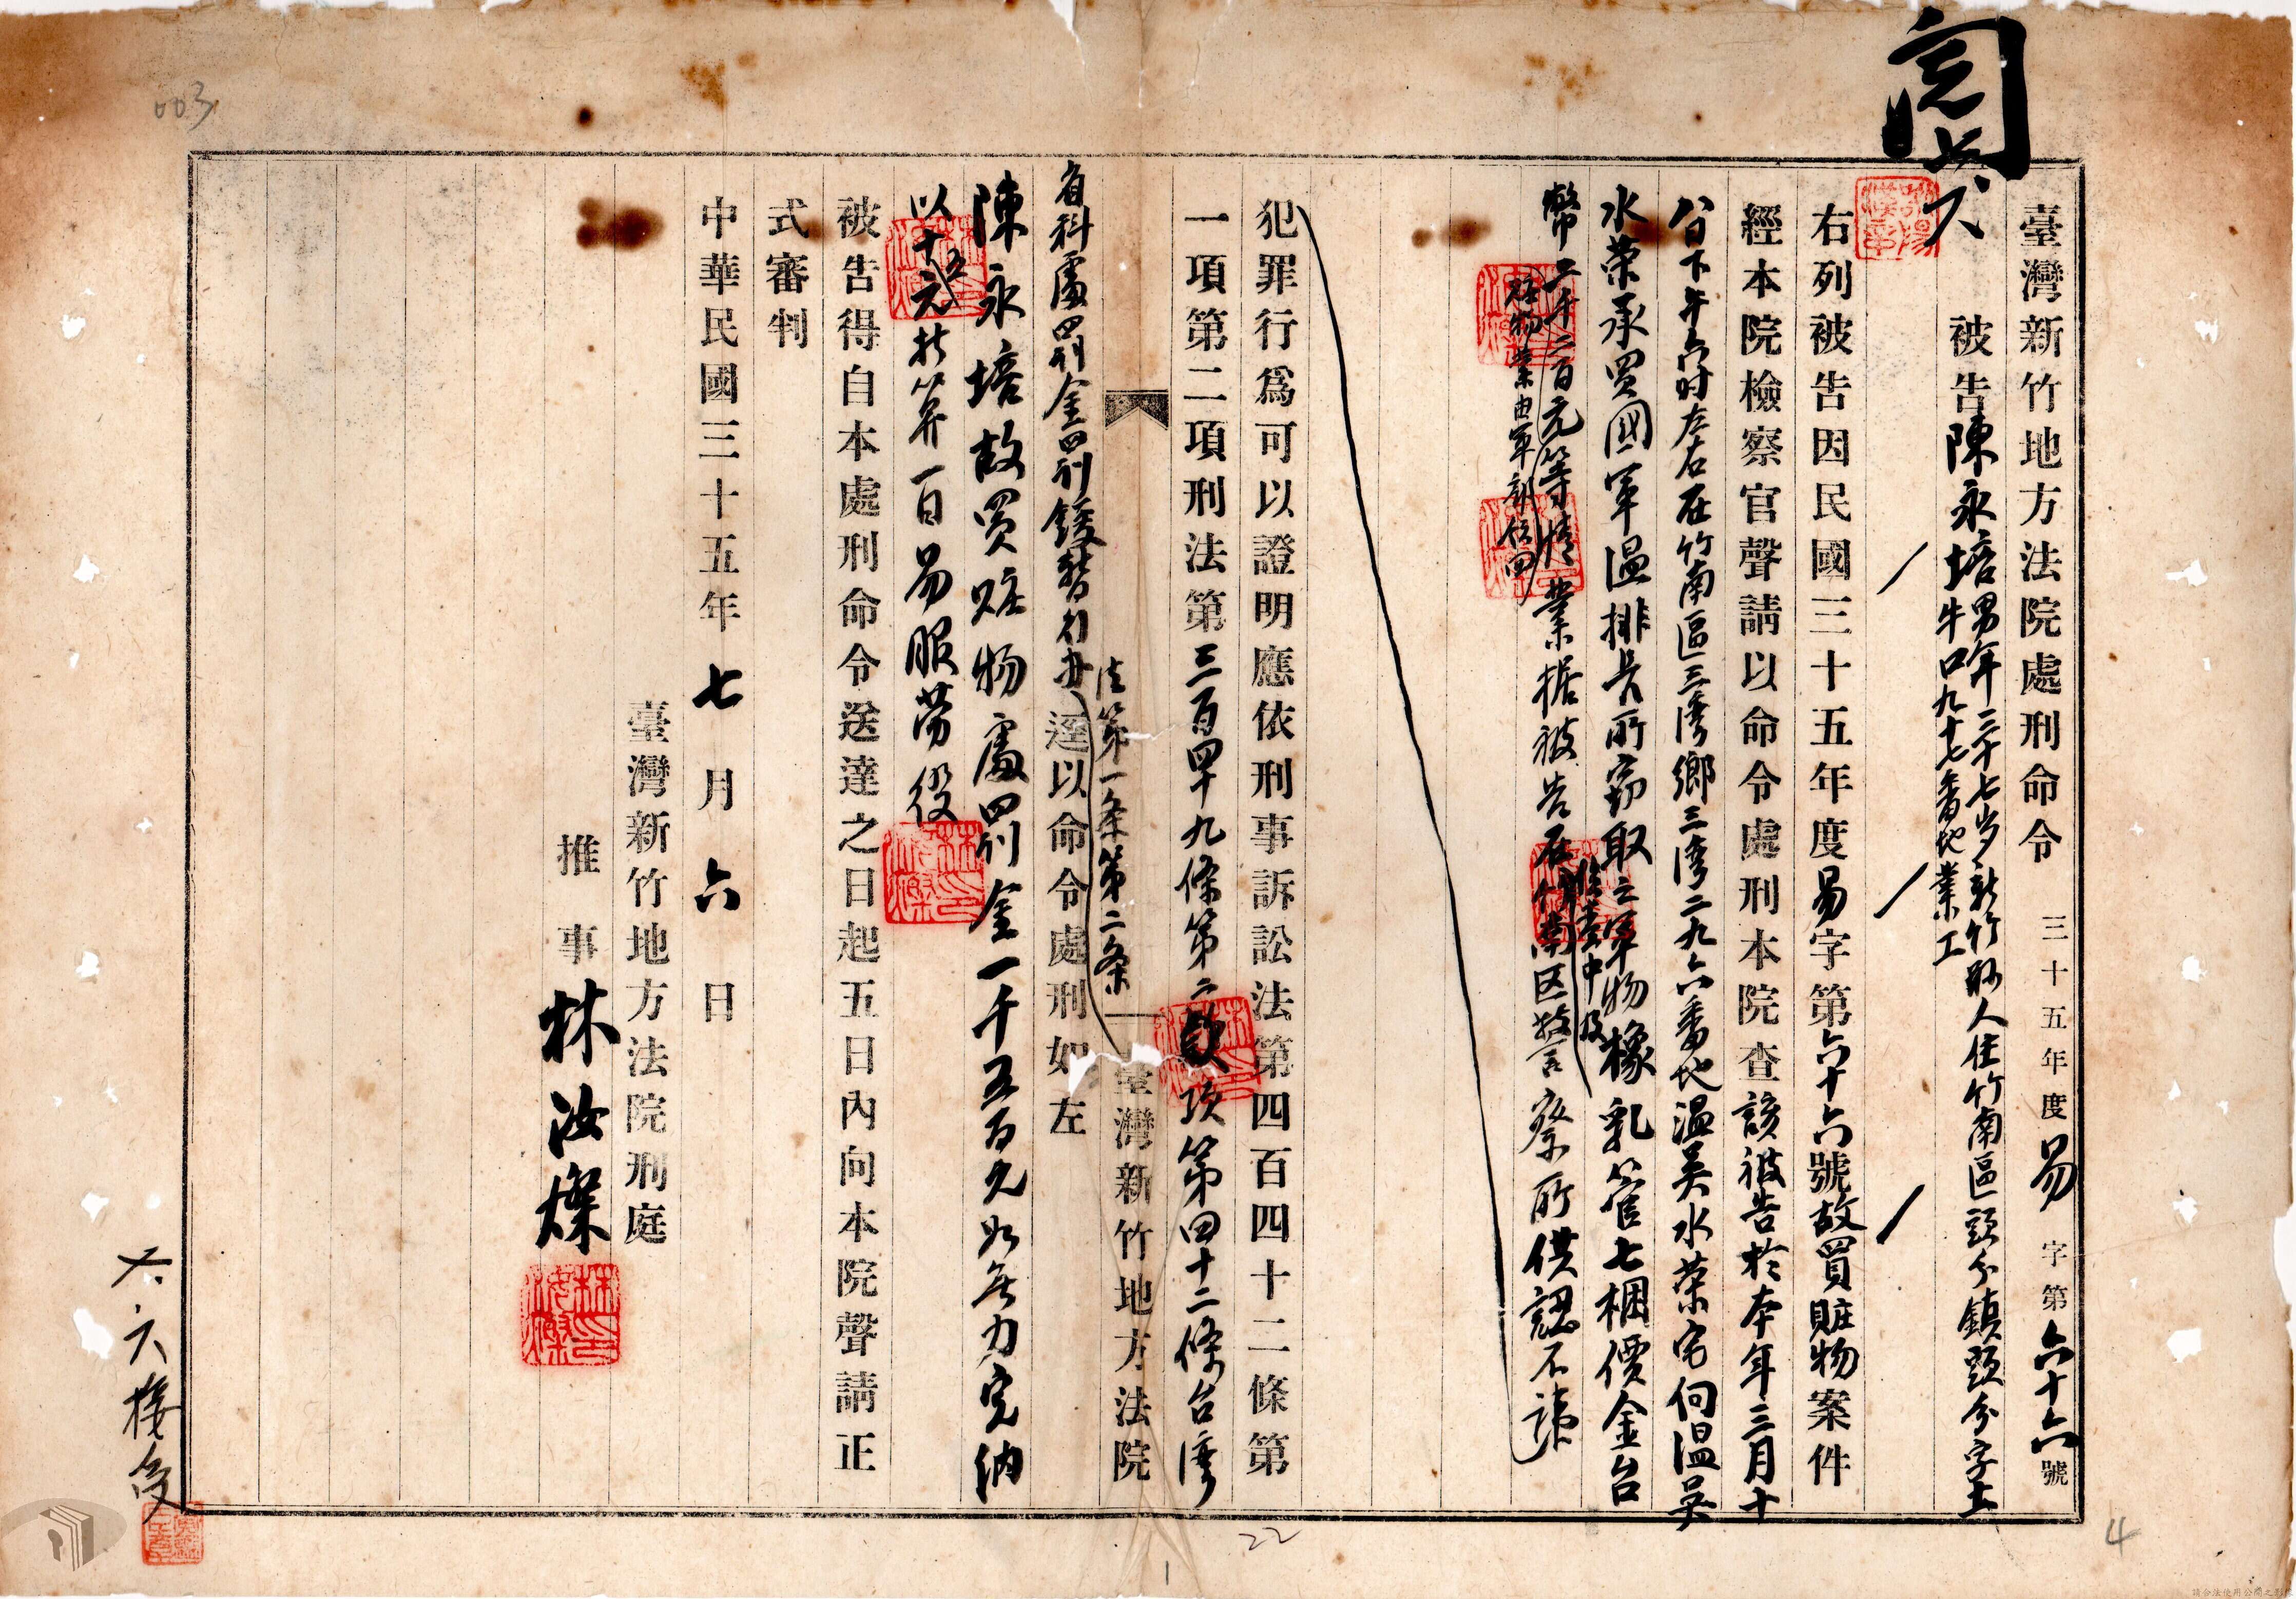 閱
七、六
臺灣新竹地方法院處刑命令 三十五年度易字第六十六號
被告 陳永培 男年三十七歲新竹縣人住竹南區頭分鎮頭分字土
牛口九十七番地業工
右列被告因民國三十五年度易字第六十六號故買贓物案件
經本院檢察官聲請以命令處刑本院查該被告於本年三月十
八日下午六时左右在竹南區三湾鄉三湾二九六番地温吴水荣宅向温吴
水荣承买國軍温排長所窃取之軍物橡乳管七梱價金台
幣二千二百元等情業据被告在竹南区警察所供認不諱
偵查中及
贓物業由軍部领回
犯罪行爲可以證明應依刑事訴訟法第四百四十二條第
一項第二項刑法第三百四十九條第二項第四十二條台湾
法第一条第二条
臺灣新竹地方法院
省科處罰金罰鍰暫行办
逕以命令處刑如左
陳永培故買贓物處罰金一千五百元如無力完納
以十五元折算一日易服労役
被告得自本處刑命令送達之日起五日內向本院聲請正
式審判
中華民國三十五年七月六日
臺灣新竹地方法院刑庭
推事 林汝燦
七、六 接受
003
22
1
4